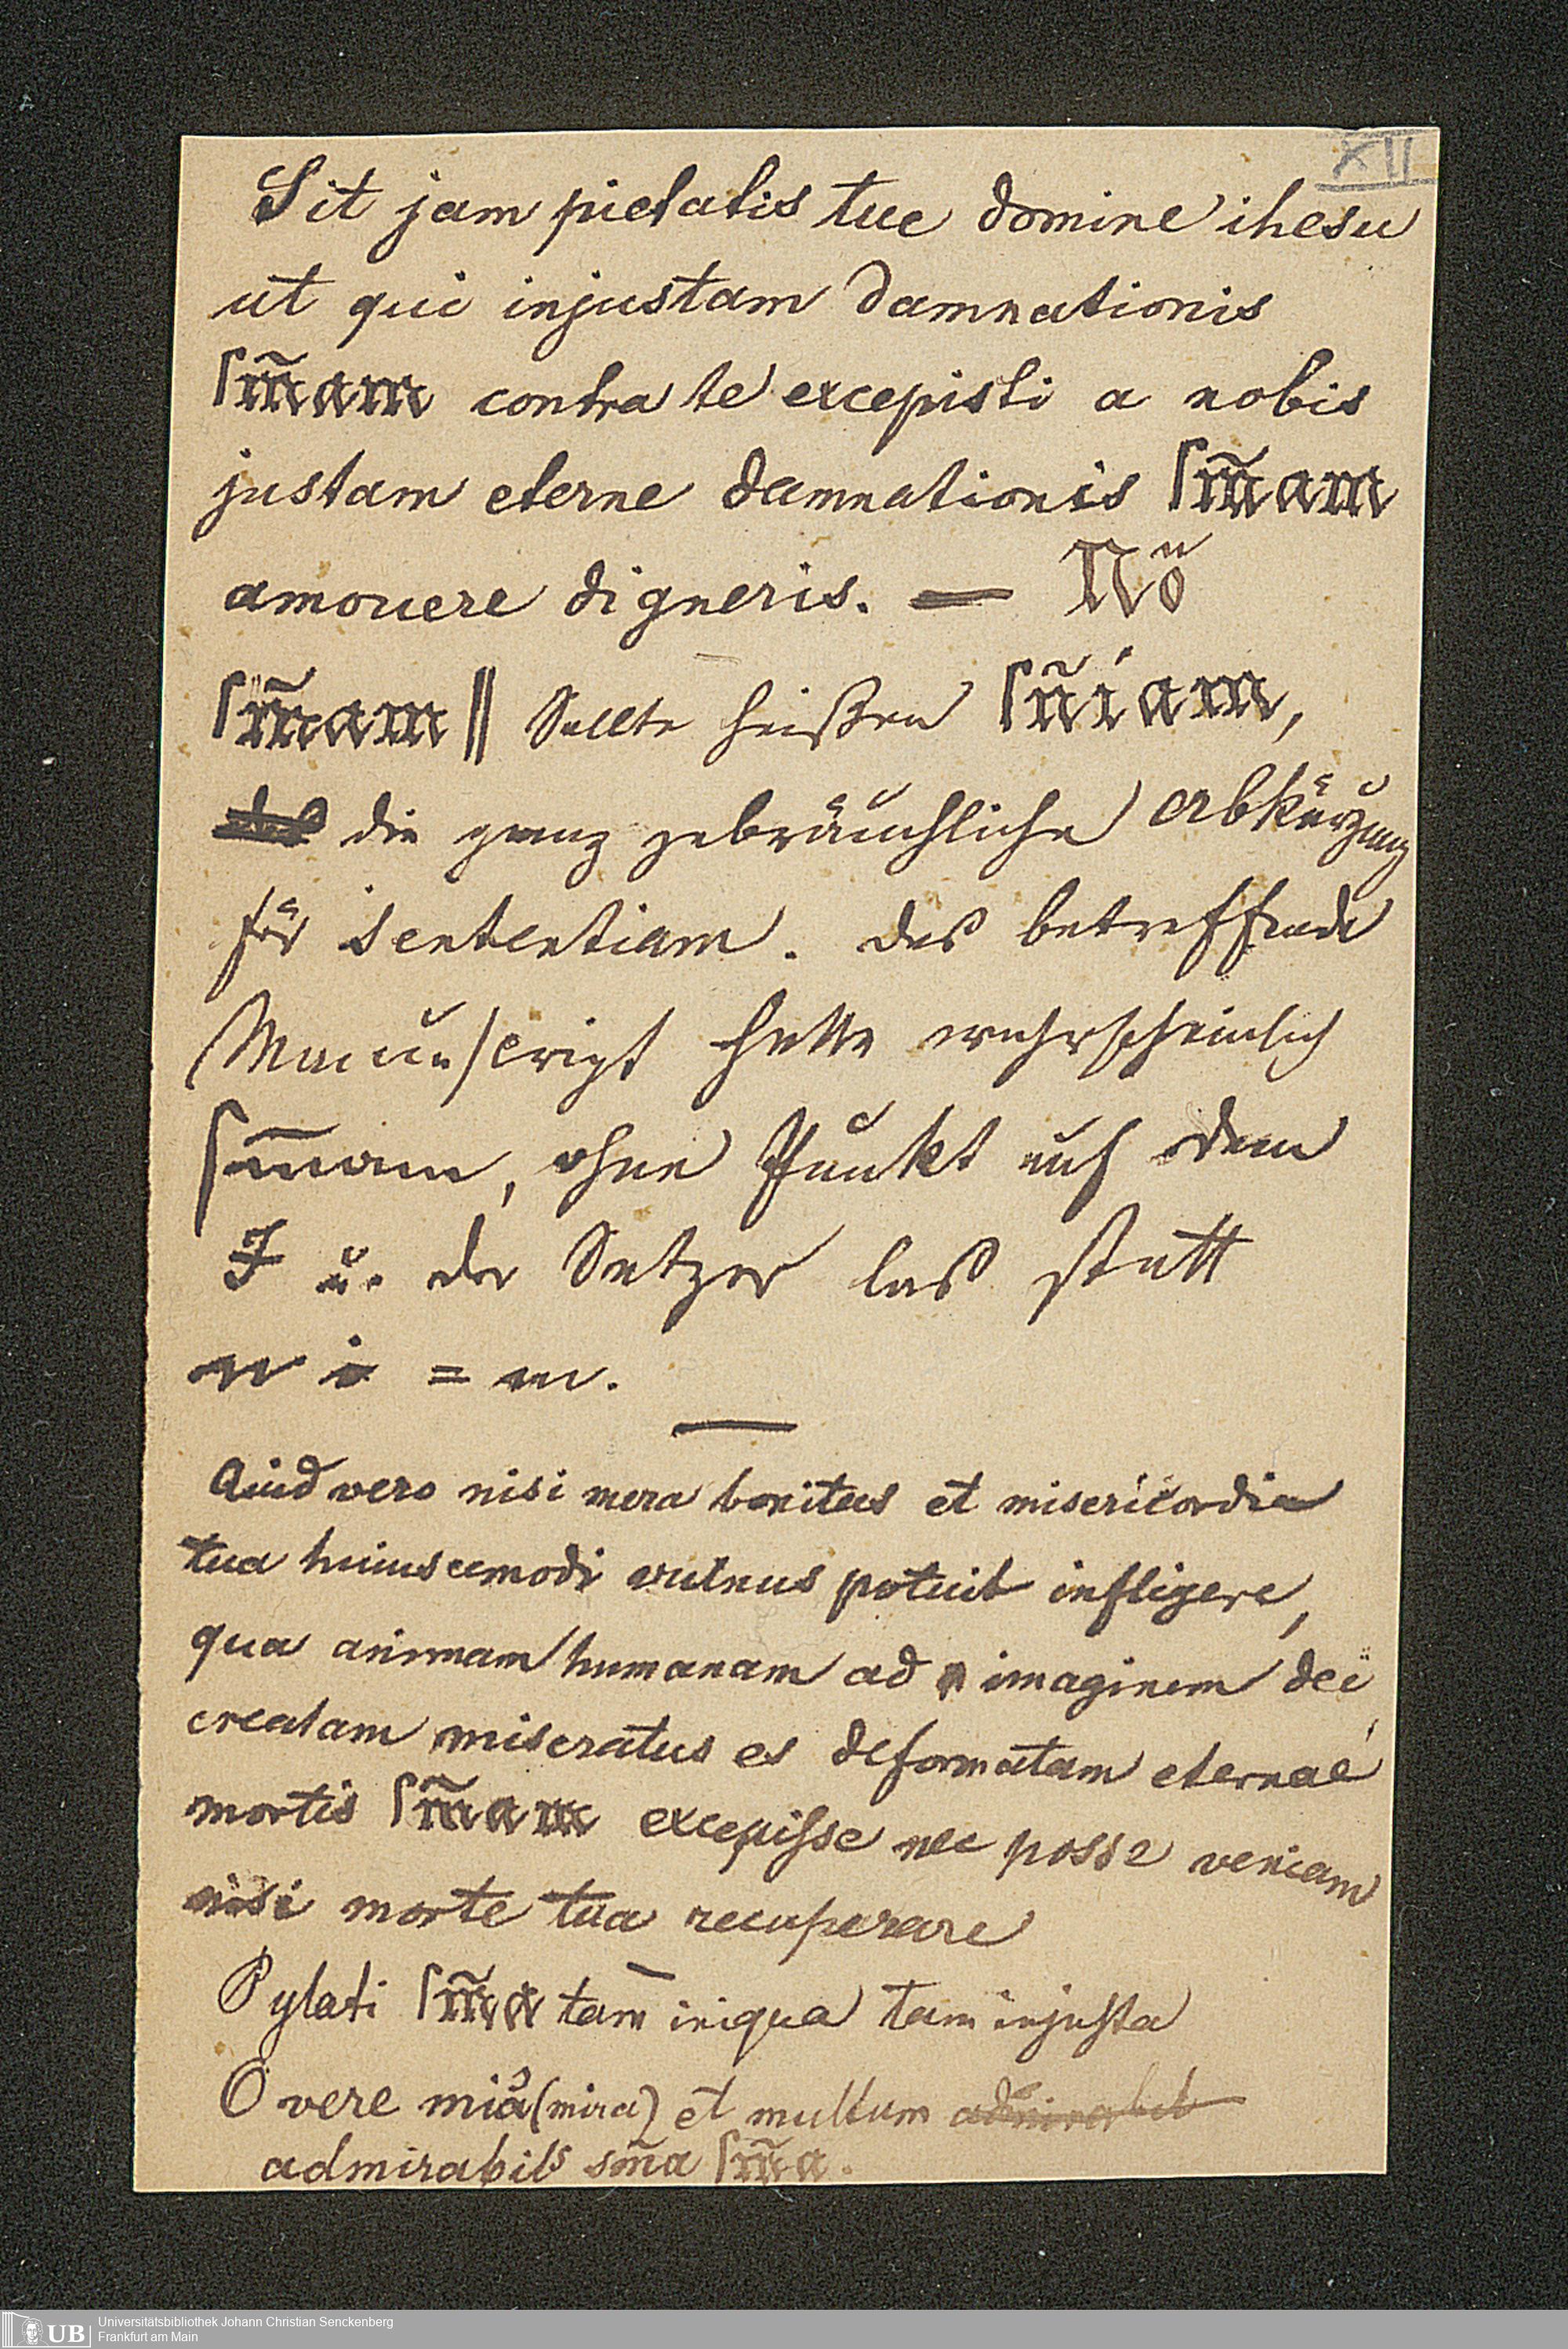 XII
Sit jam pietatis tue domine ihesu
ut qui injustam damnationis
ſm̃am contra te excepisti a nobis
justam eterne damnationis ſm̃am
amouere digneris. —
ſm̃am || Sollte heißen ſñiam,
die ganz gebräuchliche Abkürzung
für sententiam. das betreffende
Manuscript hatte wahrscheinlich
ohne Punkt auf dem
I u. der Setzer las statt
n i = m.
Quid vero nisi mera bonitas et misericordia
tua huiuscemodi vulnus potuit infligere,
qua animam humanam ad imaginem dei
creatam miseratus es deformatam eternae
mortis ſm̃am excepisse nec posse veniam
nisi morte tua recuperare
Pylati ſm̃a tam iniqua tam injusta
O vere mia (mira) et multum admirabil
admirabils sm̃a ſm̃a.
UB Universitätsbibliothek Johann Christian Senckenberg
Frankfurt am Main